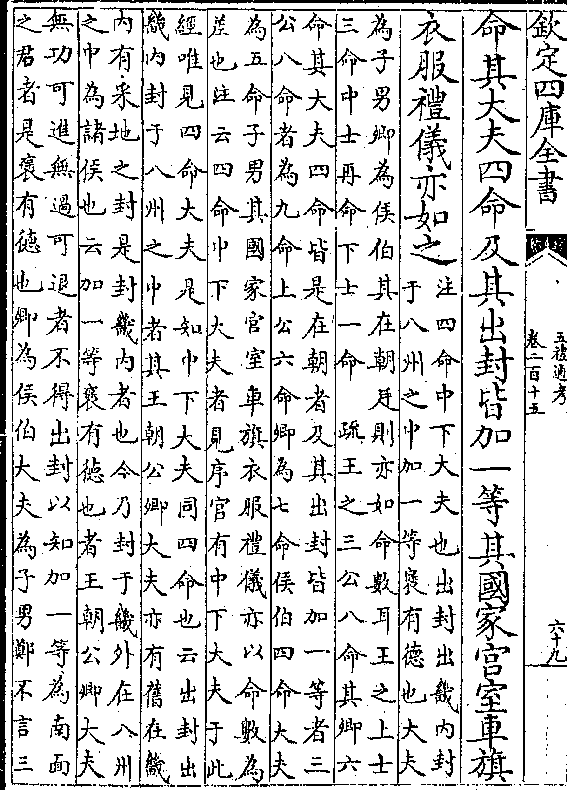 欽定四庫全書
五禮通考
卷二百十五
六十九
命其大夫四命及其出封皆加一等其國家宮室車旗
衣服禮儀亦如之
注四命中下大夫也出封出畿内封
于八州之中加一等褒有德也大夫
為子男卿為侯伯其在朝廷則亦如命數耳王之上士
三命中士再命下士一命　疏王之三公八命其卿六
命其大夫四命皆是在朝者及其出封皆加一等者三
公八命者為九命上公六命卿為七命侯伯四命大夫
為五命子男其國家宮室車旗衣服禮儀亦以命數為
差也注云四命中下大夫者見序官有中下大夫于此
經唯見四命大夫是知中下大夫同四命也云出封出
畿内封于八州之中者其王朝公卿大夫亦有舊在畿
内有采地之封是封畿内者也今乃封于畿外在八州
之中為諸侯也云加一等褒有德也者王朝公卿大夫
無功可進無過可退者不得出封以知加一等為南面
之君者是褒有德也卿為侯伯大夫為子男鄭不言三